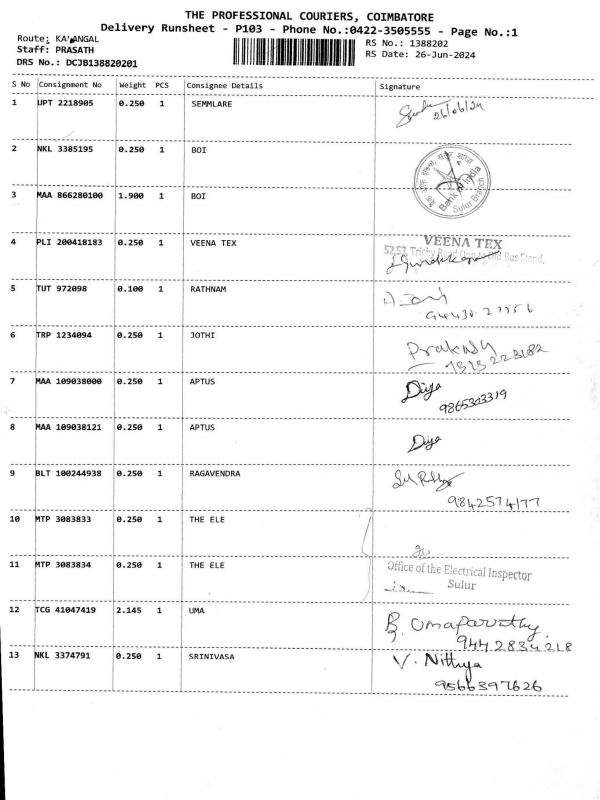 THE PROFESSIONAL COURIERS, COIMBATORE
Delivery Runsheet - P103 - Phone No.:0422-3505555 - Page No.:1
Route: KA'ANGAL
RS No.: 1388202
Staff: PRASATH
RS Date: 26-Jun-2024
DRS No.: DCJB138820201
S No Consignment No Weight PCS Consignee Details Signature
1 UPT 2218905 0.250 1 SEMMLARE
26/06/24
2 NKL 3385195 0.250 1 BOI
Bank of India
Sulur Branch
3 MAA 866280100 1.900 1 BOI
4 PLI 200418183 0.250 1 VEENA TEX
VEENA TEX
52,53, Trichy Road Old Bus Stand,
5 TUT 972098 0.100 1 RATHNAM
6 TRP 1234094 0.250 1 JOTHI
Prakash
7 MAA 109038000 0.250 1 APTUS
Diya
9865303319
8 MAA 109038121 0.250 1 APTUS
Diya
9 BLT 100244938 0.250 1 RAGAVENDRA
9842574177
10 MTP 3083833 0.250 1 THE ELE
11 MTP 3083834 0.250 1 THE ELE
Office of the Electrical Inspector
Sulur
12 TCG 41047419 2.145 1 UMA
B. Umaparvathy
9442834218
13 NKL 3374791 0.250 1 SRINIVASA
V. Nithya
9566397626